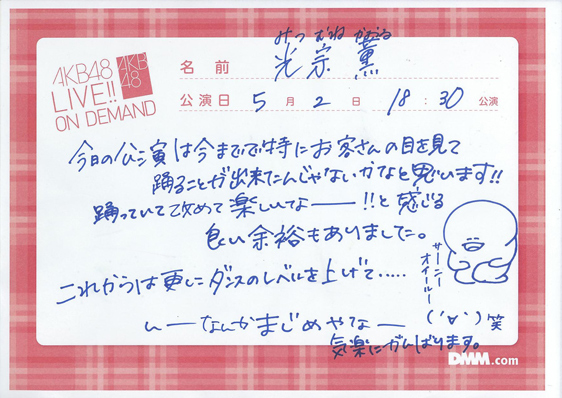 AKB48
LIVE!!
ON DEMAND
AKB
48
みつ むね かおる
名前 光宗 薫
公演日 5月 2日 18:30 公演
今日の公演は今までで特にお客さんの目を見て
踊ることが出来たんじゃないかなと思います!!
踊っていて改めて楽しいなー!!と感じる
良い余裕もありました。
これからは更にダンスのレベルを上げて.....
んーなんかまじめやなー
('∀')笑
気楽にがんばります。
サーニー
オイールー
DMM.com